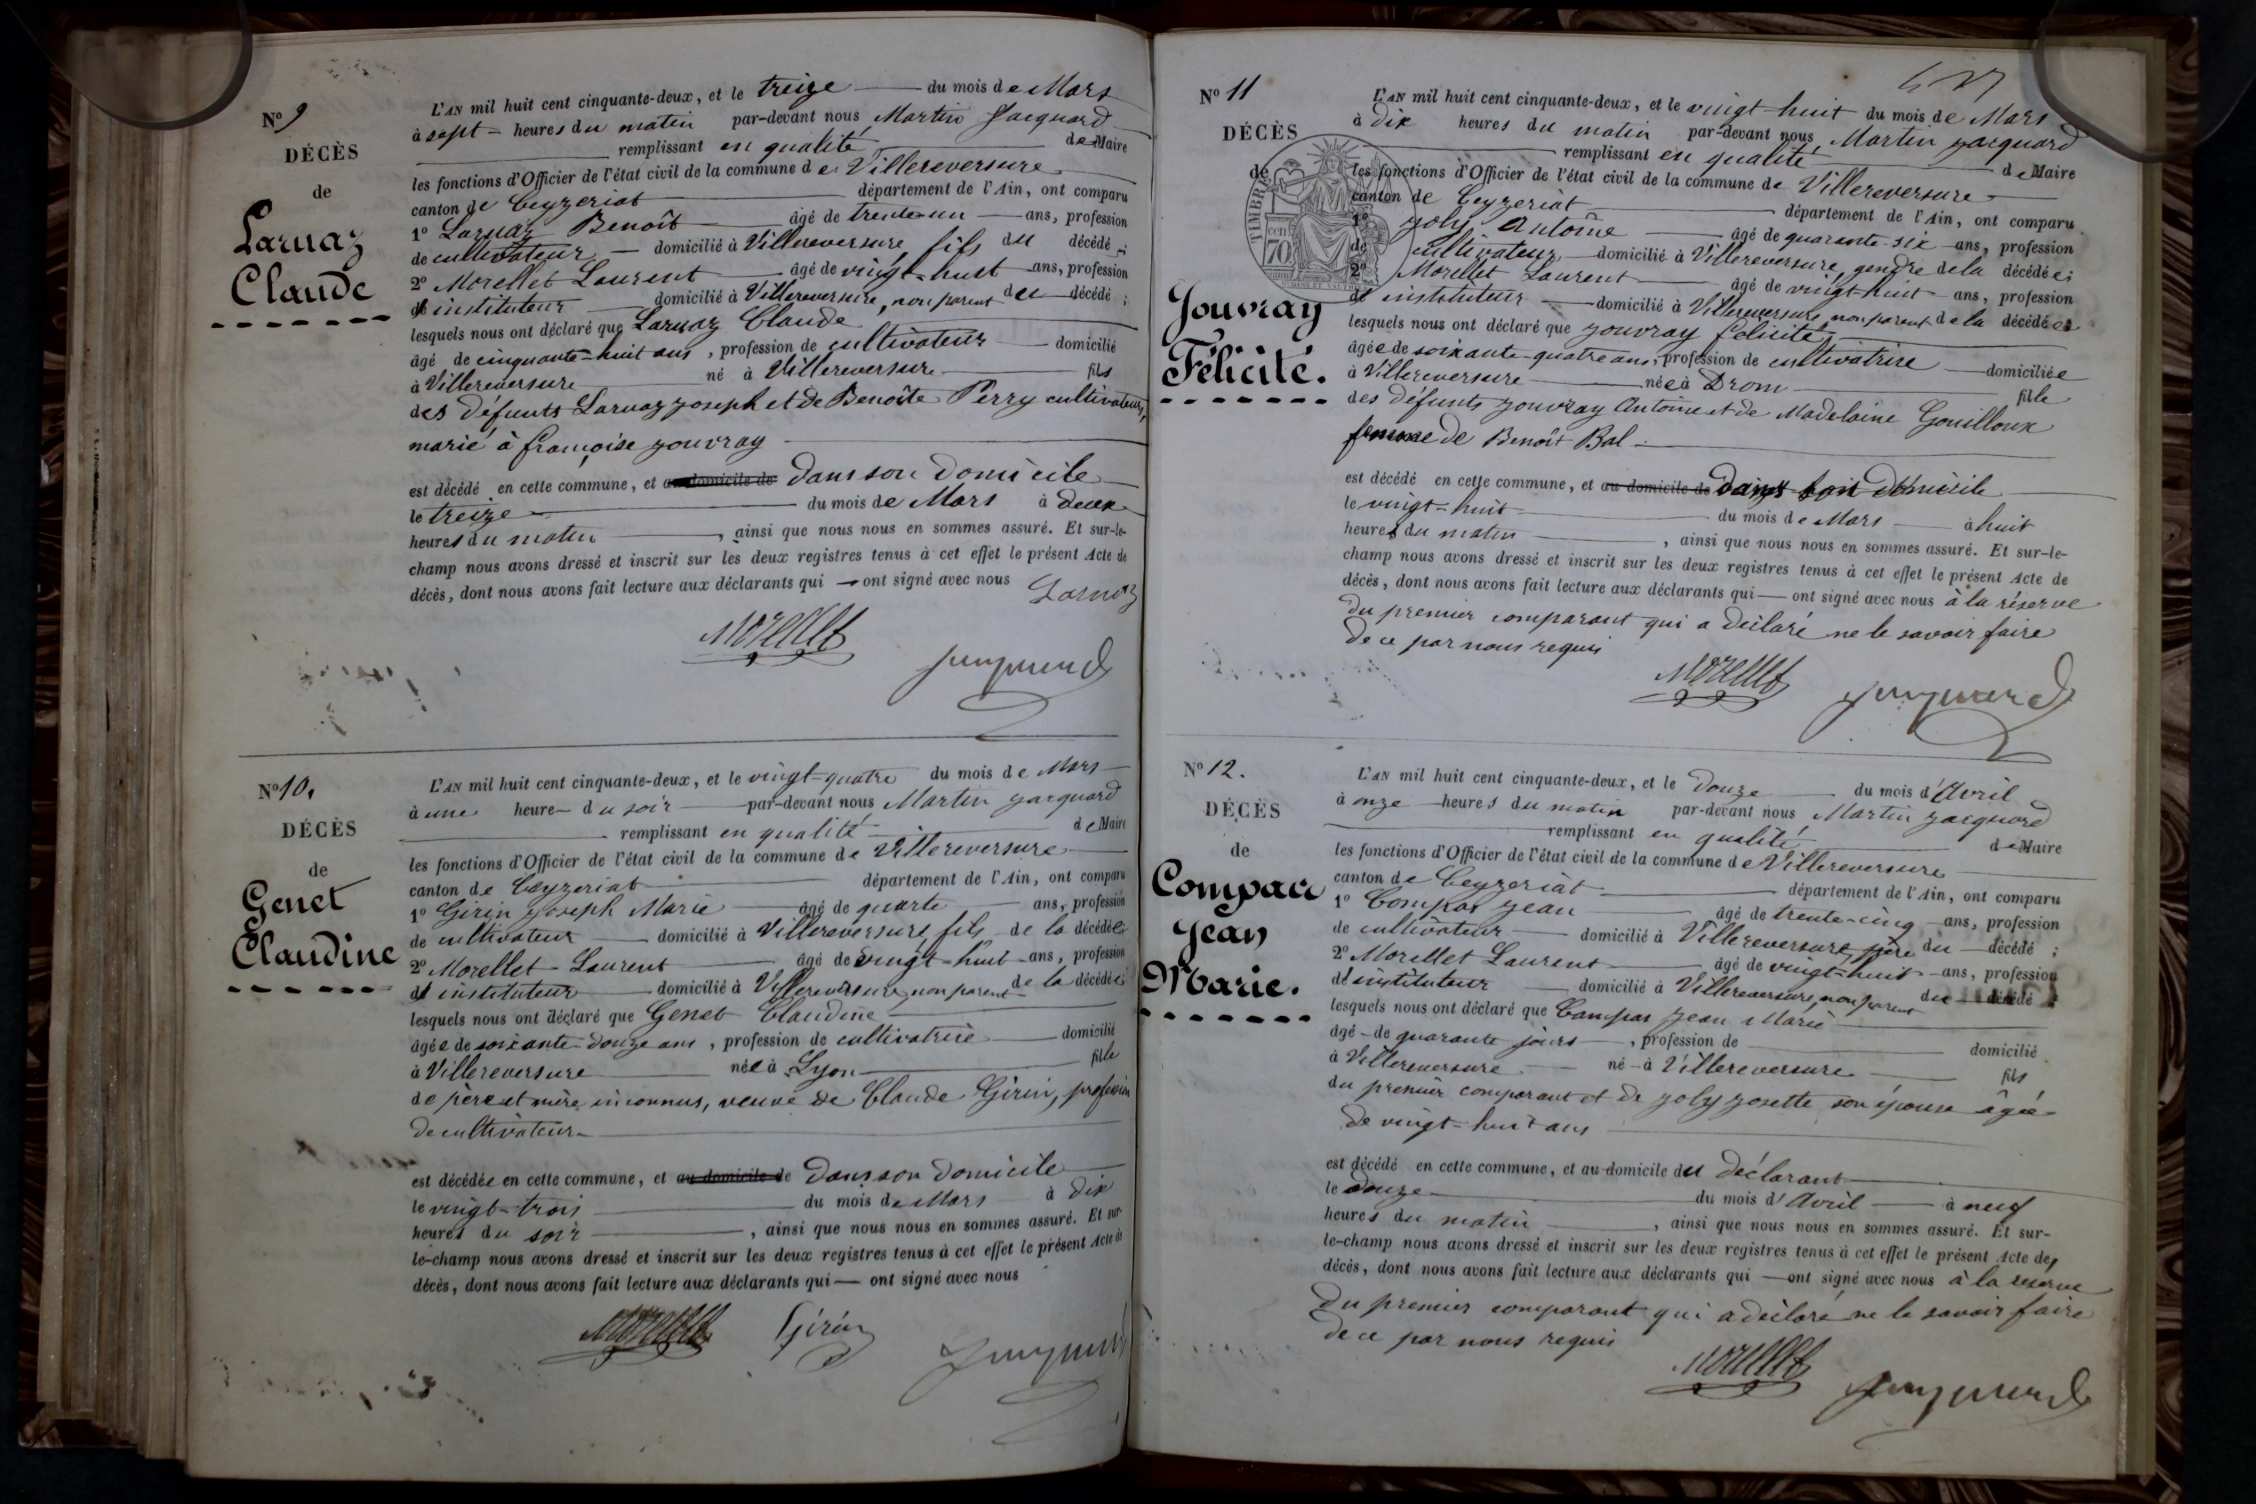 No 9
DÉCÈS
de
Larnaz
Claude
L'AN mil huit cent cinquante-deux, et le treize du mois de Mars
à sept heures du matin par-devant nous Martin Jacquard
remplissant en qualité de Maire
les fonctions d'Officier de l'état civil de la commune de Villereversure
canton de Ceyzeriat département de l'Ain, ont comparu
1o Larnaz Benoît âgé de trente-un ans, profession
de cultivateur domicilié à Villereversure, fils du décédé ;
2o Morellet Laurent âgé de vingt-huit ans, profession
d'instituteur domicilié à Villereversure, non parent du décédé ;
lesquels nous ont déclaré que Larnaz Claude
âgé de cinquante-huit ans, profession de cultivateur domicilié
à Villereversure né à Villereversure fils
des défunts Larnaz joseph et de Benoîte Perry cultivateurs,
marié à françoise jouvray
est décédé en cette commune, et au domicile de dans son domicile
le treize du mois de Mars à deux
heures du matin, ainsi que nous nous en sommes assuré. Et sur-le-
champ nous avons dressé et inscrit sur les deux registres tenus à cet effet le présent Acte de
décès, dont nous avons fait lecture aux déclarants qui ont signé avec nous
Larnaz
Morellet
Jacquard
No 10.
DÉCÈS
de
Genet
Claudine
L'AN mil huit cent cinquante-deux, et le vingt-quatre du mois de Mars
à une heure du soir par-devant nous Martin jacquard
remplissant en qualité de Maire
les fonctions d'Officier de l'état civil de la commune de Villereversure
canton de Ceyzeriat département de l'Ain, ont comparu
1o Girin joseph Marie âgé de quarte ans, profession
de cultivateur domicilié à Villereversure fils de la décédée
2o Morellet Laurent âgé de vingt-huit ans, profession
d'instituteur domicilié à Villereversure, non parent de la décédée ;
lesquels nous ont déclaré que Genet Claudine
âgée de soixante-douze ans, profession de cultivatrice domicilié
à Villereversure née à Lyon fille
de père et mère inconnus, veuve de Claude Girin, profession
de cultivateur
est décédée en cette commune, et au domicile de dans son domicile
le vingt-trois du mois de Mars à dix
heures du soir, ainsi que nous nous en sommes assuré. Et sur-
le-champ nous avons dressé et inscrit sur les deux registres tenus à cet effet le présent Acte de
décès, dont nous avons fait lecture aux déclarants qui ont signé avec nous
Morellet Girin
Jacquard
No 11
DÉCÈS
de
TIMBRE
70
Jouvray
Félicité.
L'AN mil huit cent cinquante-deux, et le vingt-huit du mois de Mars
à dix heures du matin par-devant nous Martin jacquard
remplissant en qualité de Maire
les fonctions d'Officier de l'état civil de la commune de Villereversure
canton de Ceyzeriat département de l'Ain, ont comparu
1o joly Antoine âgé de quarante-six ans, profession
de cultivateur domicilié à Villereversure, gendre de la décédée ;
2o Morellet Laurent âgé de vingt-huit ans, profession
d'instituteur domicilié à Villereversure, non parent de la décédée
lesquels nous ont déclaré que jouvray félicité
âgée de soixante-quatre ans, profession de cultivatrice domiciliée
à Villereversure née à Drom fille
des défunts jouvray Antoine et de Madelaine Gouilloux
femme de Benoît Bal
est décédé en cette commune, et au domicile de dans son domicile
le vingt-huit du mois de Mars à huit
heures du matin, ainsi que nous nous en sommes assuré. Et sur-le-
champ nous avons dressé et inscrit sur les deux registres tenus à cet effet le présent Acte de
décès, dont nous avons fait lecture aux déclarants qui ont signé avec nous à la réserve
du premier comparant qui a déclaré ne le savoir faire
de ce par nous requis
Morellet
Jacquard
No 12.
DÉCÈS
de
Compas
Jean
Marie.
L'AN mil huit cent cinquante-deux, et le douze du mois d'Avril
à onze heures du matin par-devant nous Martin jacquard
remplissant en qualité de Maire
les fonctions d'Officier de l'état civil de la commune de Villereversure
canton de Ceyzeriat département de l'Ain, ont comparu
1o Compas jean âgé de trente-cinq ans, profession
de cultivateur domicilié à Villereversure père du décédé ;
2o Morellet Laurent âgé de vingt-huit ans, profession
d'instituteur domicilié à Villereversure, non parent du décédé
lesquels nous ont déclaré que Compas jean Marie
âgé de quarante jours, profession de domicilié
à Villereversure né à Villereversure fils
du premier comparant et de joly josette son épouse âgée
de vingt-huit ans
est décédé en cette commune, et au domicile du déclarant
le douze du mois d'Avril à neuf
heures du matin, ainsi que nous nous en sommes assuré. Et sur-
le-champ nous avons dressé et inscrit sur les deux registres tenus à cet effet le présent Acte de
décès, dont nous avons fait lecture aux déclarants qui ont signé avec nous à la réserve
du premier comparant qui a déclaré ne le savoir faire
de ce par nous requis
Morellet
Jacquard